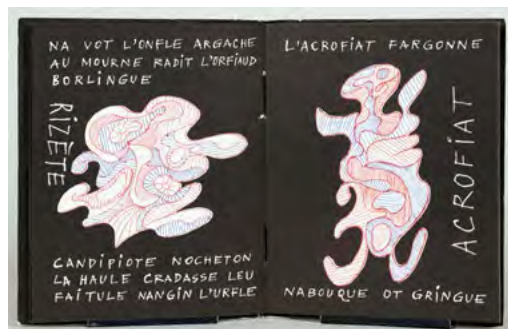 NA VOT L'ONFLE ARGACHE
AU MOURNE RADIT L'ORFIAUD
BORLINGUE
RIZÈTE
CANDIPIOTE NOCHETON
LA HAULE CRADASSE LEU
FAITULE NANGIN L'URFLE
L'ACROFIAT FARGONNE
ACROFIAT
NABOUQUE OT GRINGUE